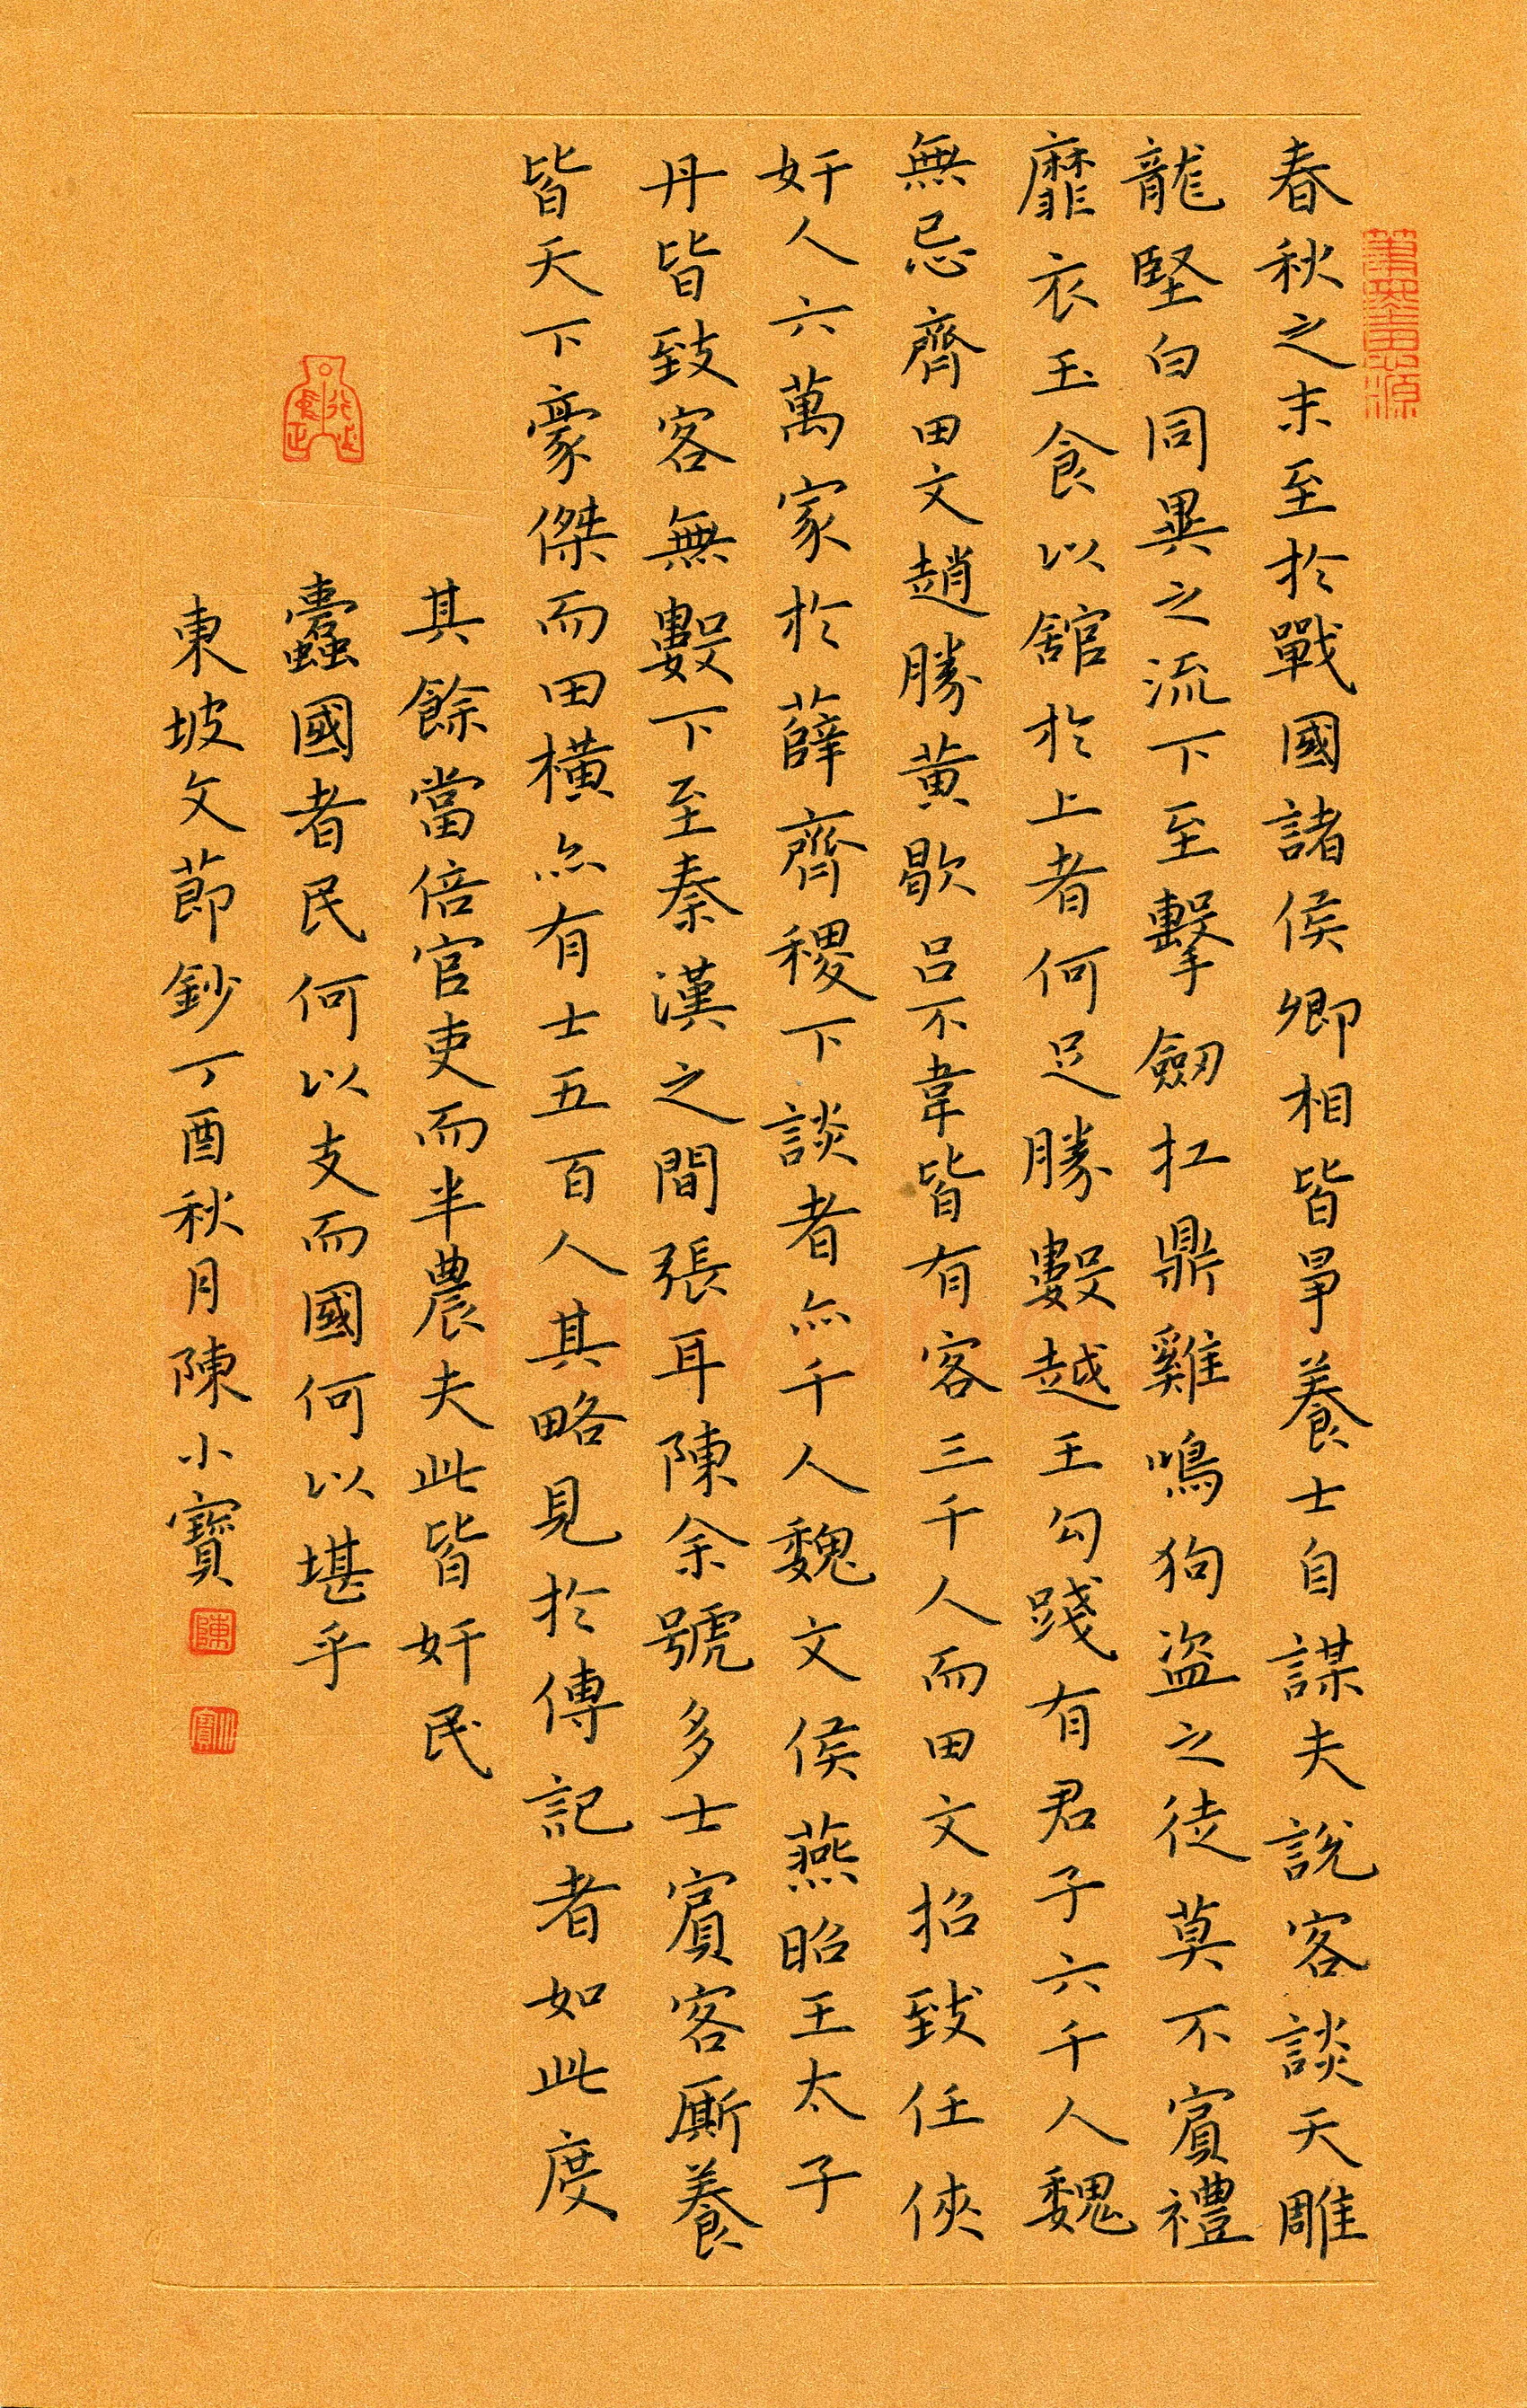 春秋之末至於戰國諸侯卿相皆爭養士自謀夫說客談天雕
龍堅白同異之流下至擊劒扛鼎雞鳴狗盜之徒莫不賓禮
靡衣玉食以館於上者何足勝數越王勾踐有君子六千人魏
無忌齊田文趙勝黃歇呂不韋皆有客三千人而田文招致任俠
奸人六萬家於薛齊稷下談者亦千人魏文侯燕昭王太子
丹皆致客無數下至秦漢之間張耳陳余號多士賓客廝養
皆天下豪傑而田橫亦有士五百人其略見於傳記者如此度
其餘當倍官吏而半農夫此皆奸民
蠹國者民何以支而國何以堪乎
東坡文節鈔丁酉秋月陳小寶
陳
小寶